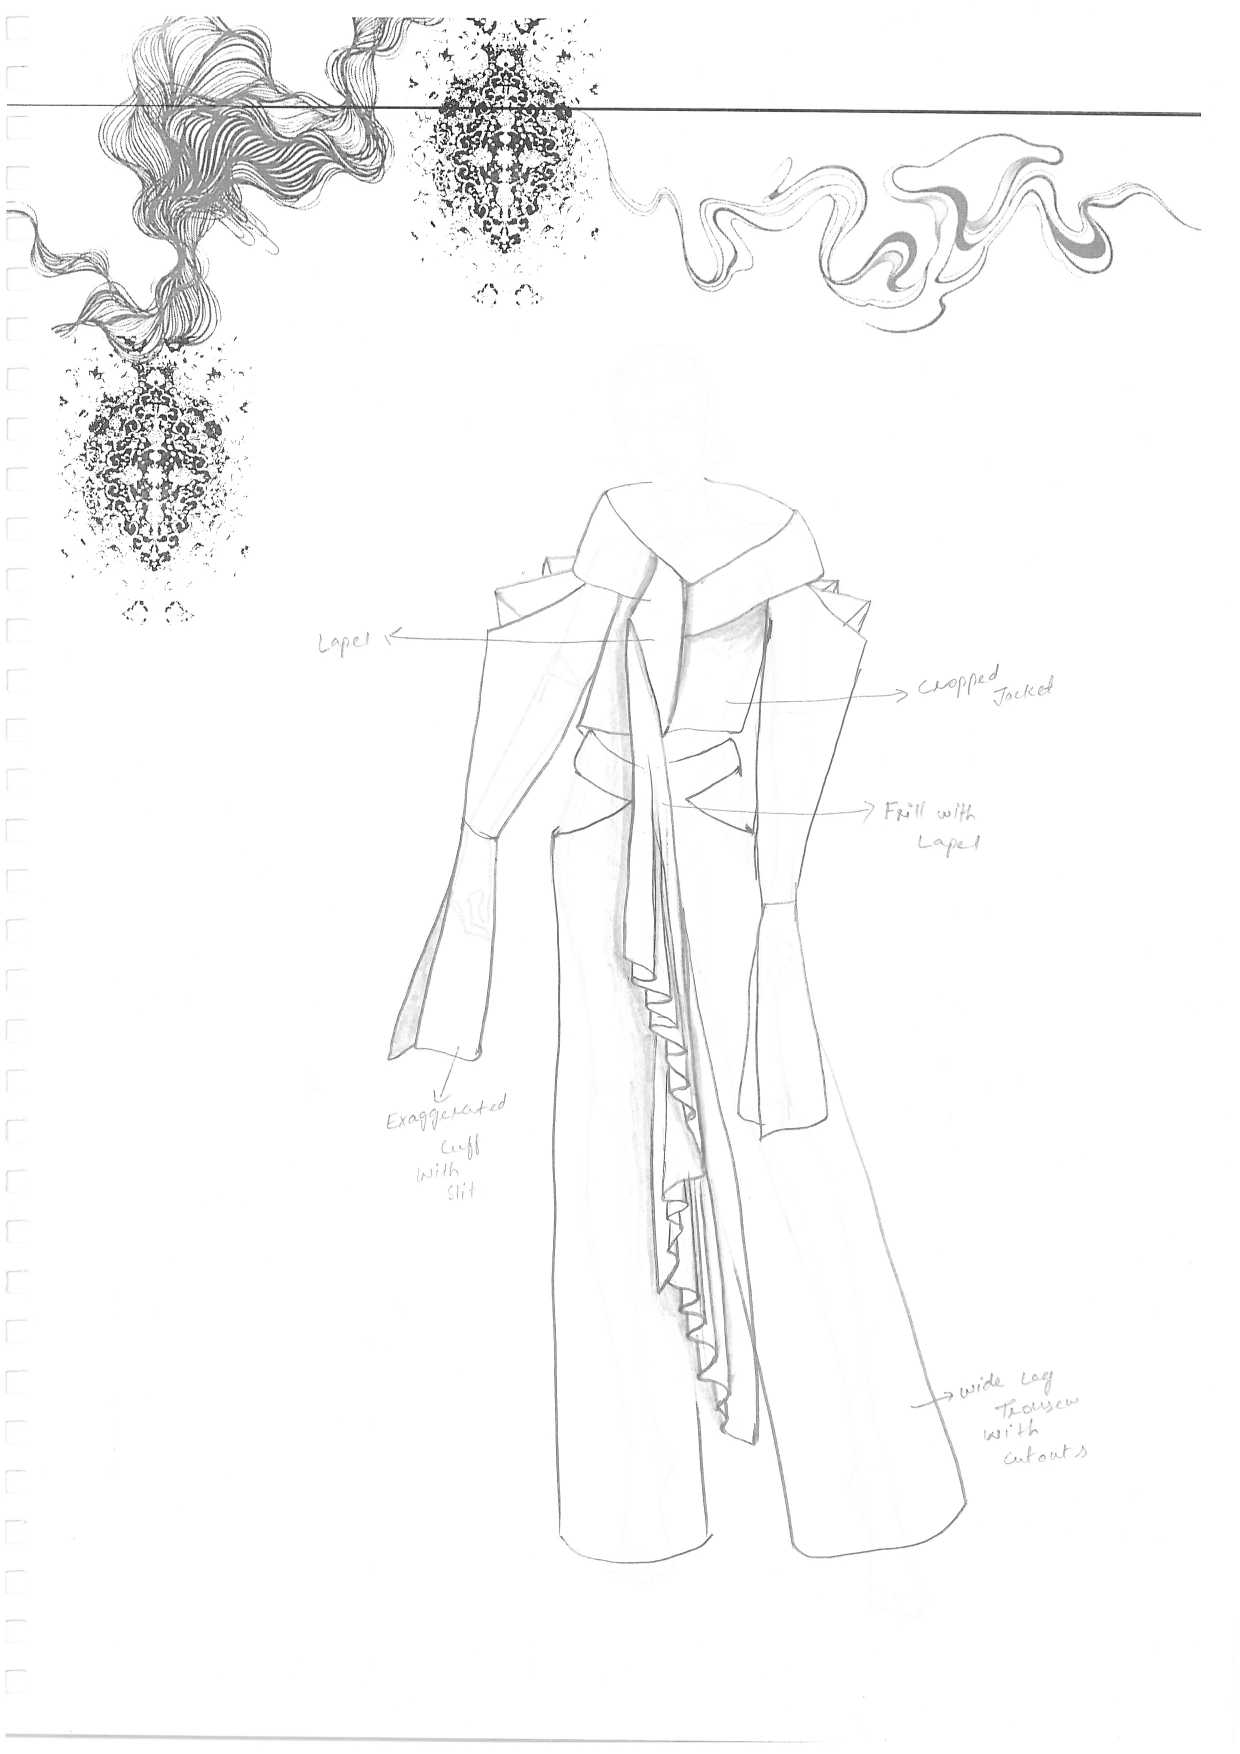 Lapel
Cropped
Jacket
Frill with
Lapel
Exaggerated
Cuff
With
Slit
Wide Leg
Trouser
With
Cutouts